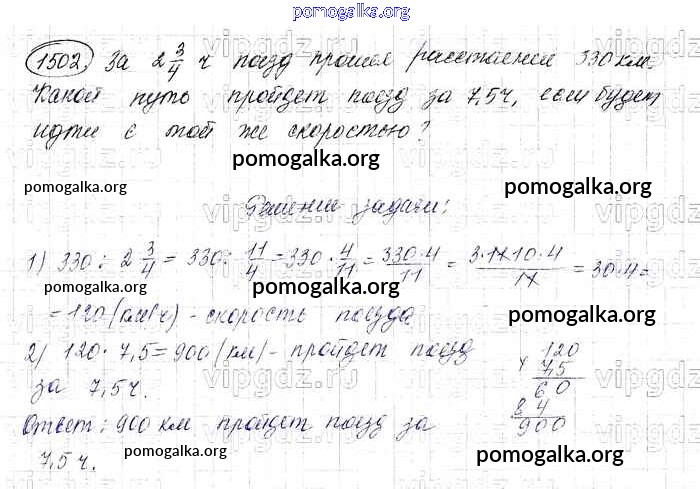 pomogalka.org
1502. За 2 3/4 ч поезд прошел расстояние 330 км.
Какой путь пройдет поезд за 7,5 ч, если будет
идти с той же скоростью?
pomogalka.org
pomogalka.org pomogalka.org
Решение задачи:
1) 330 : 2 3/4 = 330 : 11/4 = 330 · 4/11 = 330·4/11 = 3·11·10·4/11 = 30·4 =
pomogalka.org pomogalka.org
= 120 (км/ч) - скорость поезда
2) 120 · 7,5 = 900 (км) - пройдет поезд
за 7,5 ч.
120
7,5
60
84
900
Ответ: 900 км пройдет поезд за
7,5 ч.
pomogalka.org pomogalka.org
vipgdz.ru